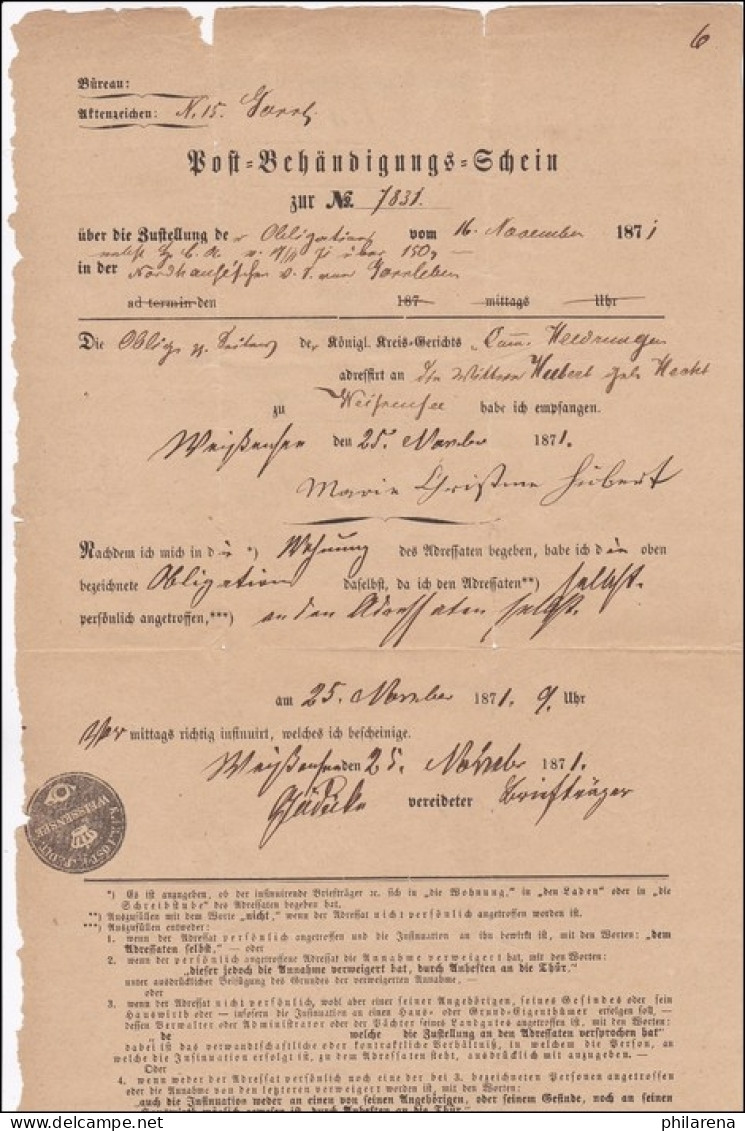 6
Büreau:
Aktenzeichen: N. 15.
Post-Behändigungs-Schein
zur No. 7831.
über die Zustellung der Obligation vom 16. November 1871
über 150
in der
ad termin den 187 mittags Uhr
Die der Königl. Kreis-Gerichts Heldrungen
adressirt an die Wittwe Hubert geb. Hecht
zu Weißensee habe ich empfangen.
Weißensee den 25. November 1871.
Marie Christine Hubert
Nachdem ich mich in die *) Wohnung des Adressaten begeben, habe ich die oben
bezeichnete Obligation daselbst, da ich den Adressaten**) selbst
persönlich angetroffen,***) an den Adressaten selbst.
am 25. November 1871. 9. Uhr
Vormittags richtig insinuirt, welches ich bescheinige.
Weißensee den 25. November 1871.
vereideter Briefträger
WEISSENSEE
*) Es ist anzugeben, ob der insinuirende Briefträger ꝛc. sich in „die Wohnung,“ in „den Laden“ oder in „die
Schreibstube“ des Adressaten begeben hat.
**) Auszufüllen mit dem Worte „nicht,“ wenn der Adressat nicht persönlich angetroffen worden ist.
***) Auszufüllen entweder:
1. wenn der Adressat persönlich angetroffen und die Insinuation an ihn bewirkt ist, mit den Worten: „dem
Adressaten selbst,“ — oder
2. wenn der persönlich angetroffene Adressat die Annahme verweigert hat, mit den Worten:
„dieser jedoch die Annahme verweigert hat, durch Anheften an die Thür,“
unter ausdrücklicher Beifügung des Grundes der verweigerten Annahme, —
oder
3. wenn der Adressat nicht persönlich, wohl aber einer seiner Angehörigen, seines Gesindes oder sein
Hauswirth oder — insofern die Insinuation an einen Haus- oder Grund-Eigenthümer erfolgen soll, —
dessen Verwalter oder Administrator oder der Pächter seines Landgutes angetroffen ist, mit den Worten:
„de welche die Zustellung an den Adressaten versprochen hat“
dabei ist das verwandtschaftliche oder kontraktliche Verhältniß, in welchem die Person, an
welche die Insinuation erfolgt ist, zu dem Adressaten steht, ausdrücklich mit anzugeben. —
Oder
4. wenn weder der Adressat persönlich noch eine der bei 3. bezeichneten Personen angetroffen
oder die Annahme von den letzteren verweigert worden ist, mit den Worten:
„auch die Insinuation weder an einen von seinen Angehörigen, oder seinem Gesinde, noch an seinen
Hauswirth möglich gewesen ist, durch Anheften an die Thür.“
philarena